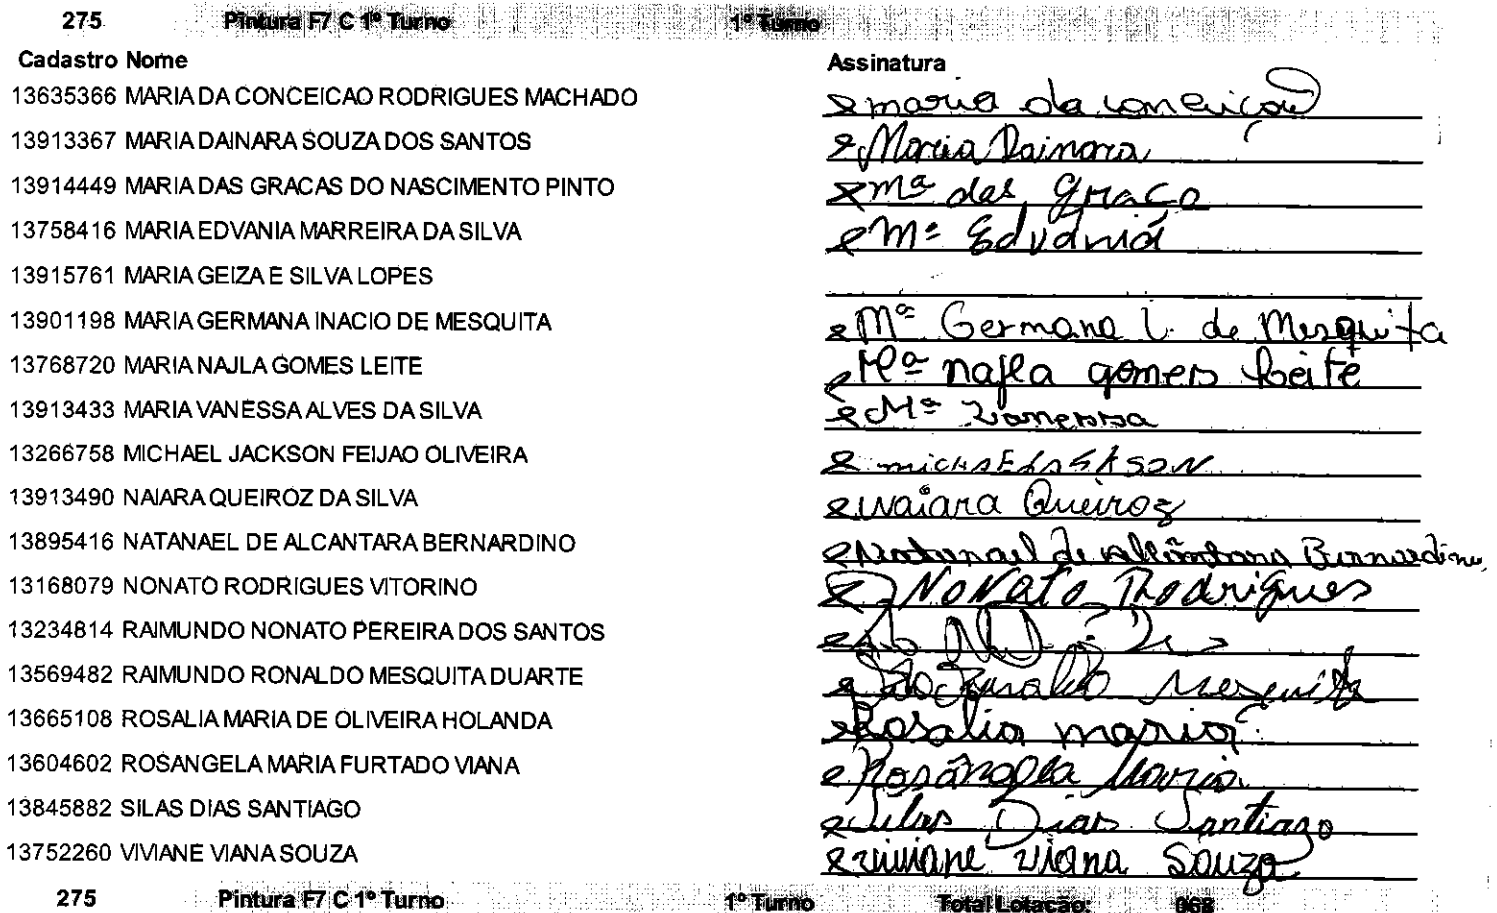 275 Pintura F7 C 1º Turno 1º Turno
Cadastro Nome Assinatura
13635366 MARIA DA CONCEICAO RODRIGUES MACHADO maria da conceição
13913367 MARIA DAINARA SOUZA DOS SANTOS Maria Dainara
13914449 MARIA DAS GRACAS DO NASCIMENTO PINTO Mª das Graça
13758416 MARIA EDVANIA MARREIRA DA SILVA Mª Edvania
13915761 MARIA GEIZA E SILVA LOPES
13901198 MARIA GERMANA INACIO DE MESQUITA Mª Germana I. de Mesquita
13768720 MARIA NAJLA GOMES LEITE Mª najla gomes Leite
13913433 MARIA VANESSA ALVES DA SILVA Mª Vanessa
13266758 MICHAEL JACKSON FEIJAO OLIVEIRA
13913490 NAIARA QUEIROZ DA SILVA Naiara Queiroz
13895416 NATANAEL DE ALCANTARA BERNARDINO Natanael de Alcântara Bernardino
13168079 NONATO RODRIGUES VITORINO Nonato Rodrigues
13234814 RAIMUNDO NONATO PEREIRA DOS SANTOS
13569482 RAIMUNDO RONALDO MESQUITA DUARTE Ronaldo Mesquita
13665108 ROSALIA MARIA DE OLIVEIRA HOLANDA Rosalia maria
13604602 ROSANGELA MARIA FURTADO VIANA Rosângela Maria
13845882 SILAS DIAS SANTIAGO Silas Dias Santiago
13752260 VIVIANE VIANA SOUZA viviane viana Souza
275 Pintura F7 C 1º Turno 1º Turno Total Lotacão: 068